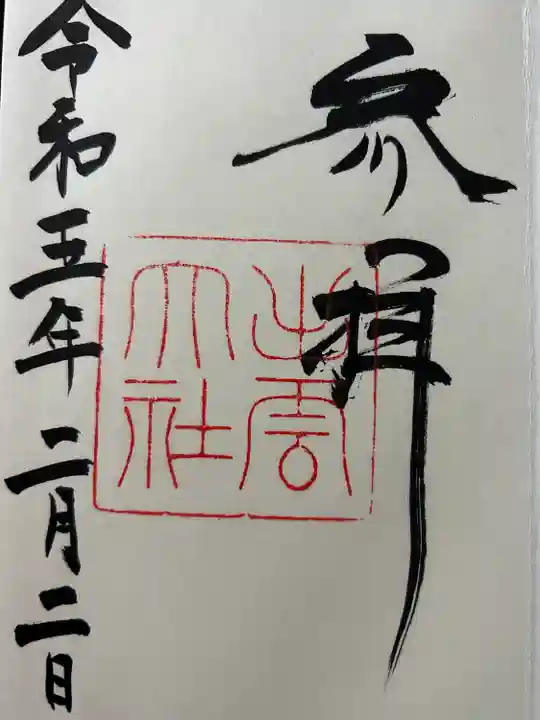 参拝
出雲
大社
令和五年二月二日